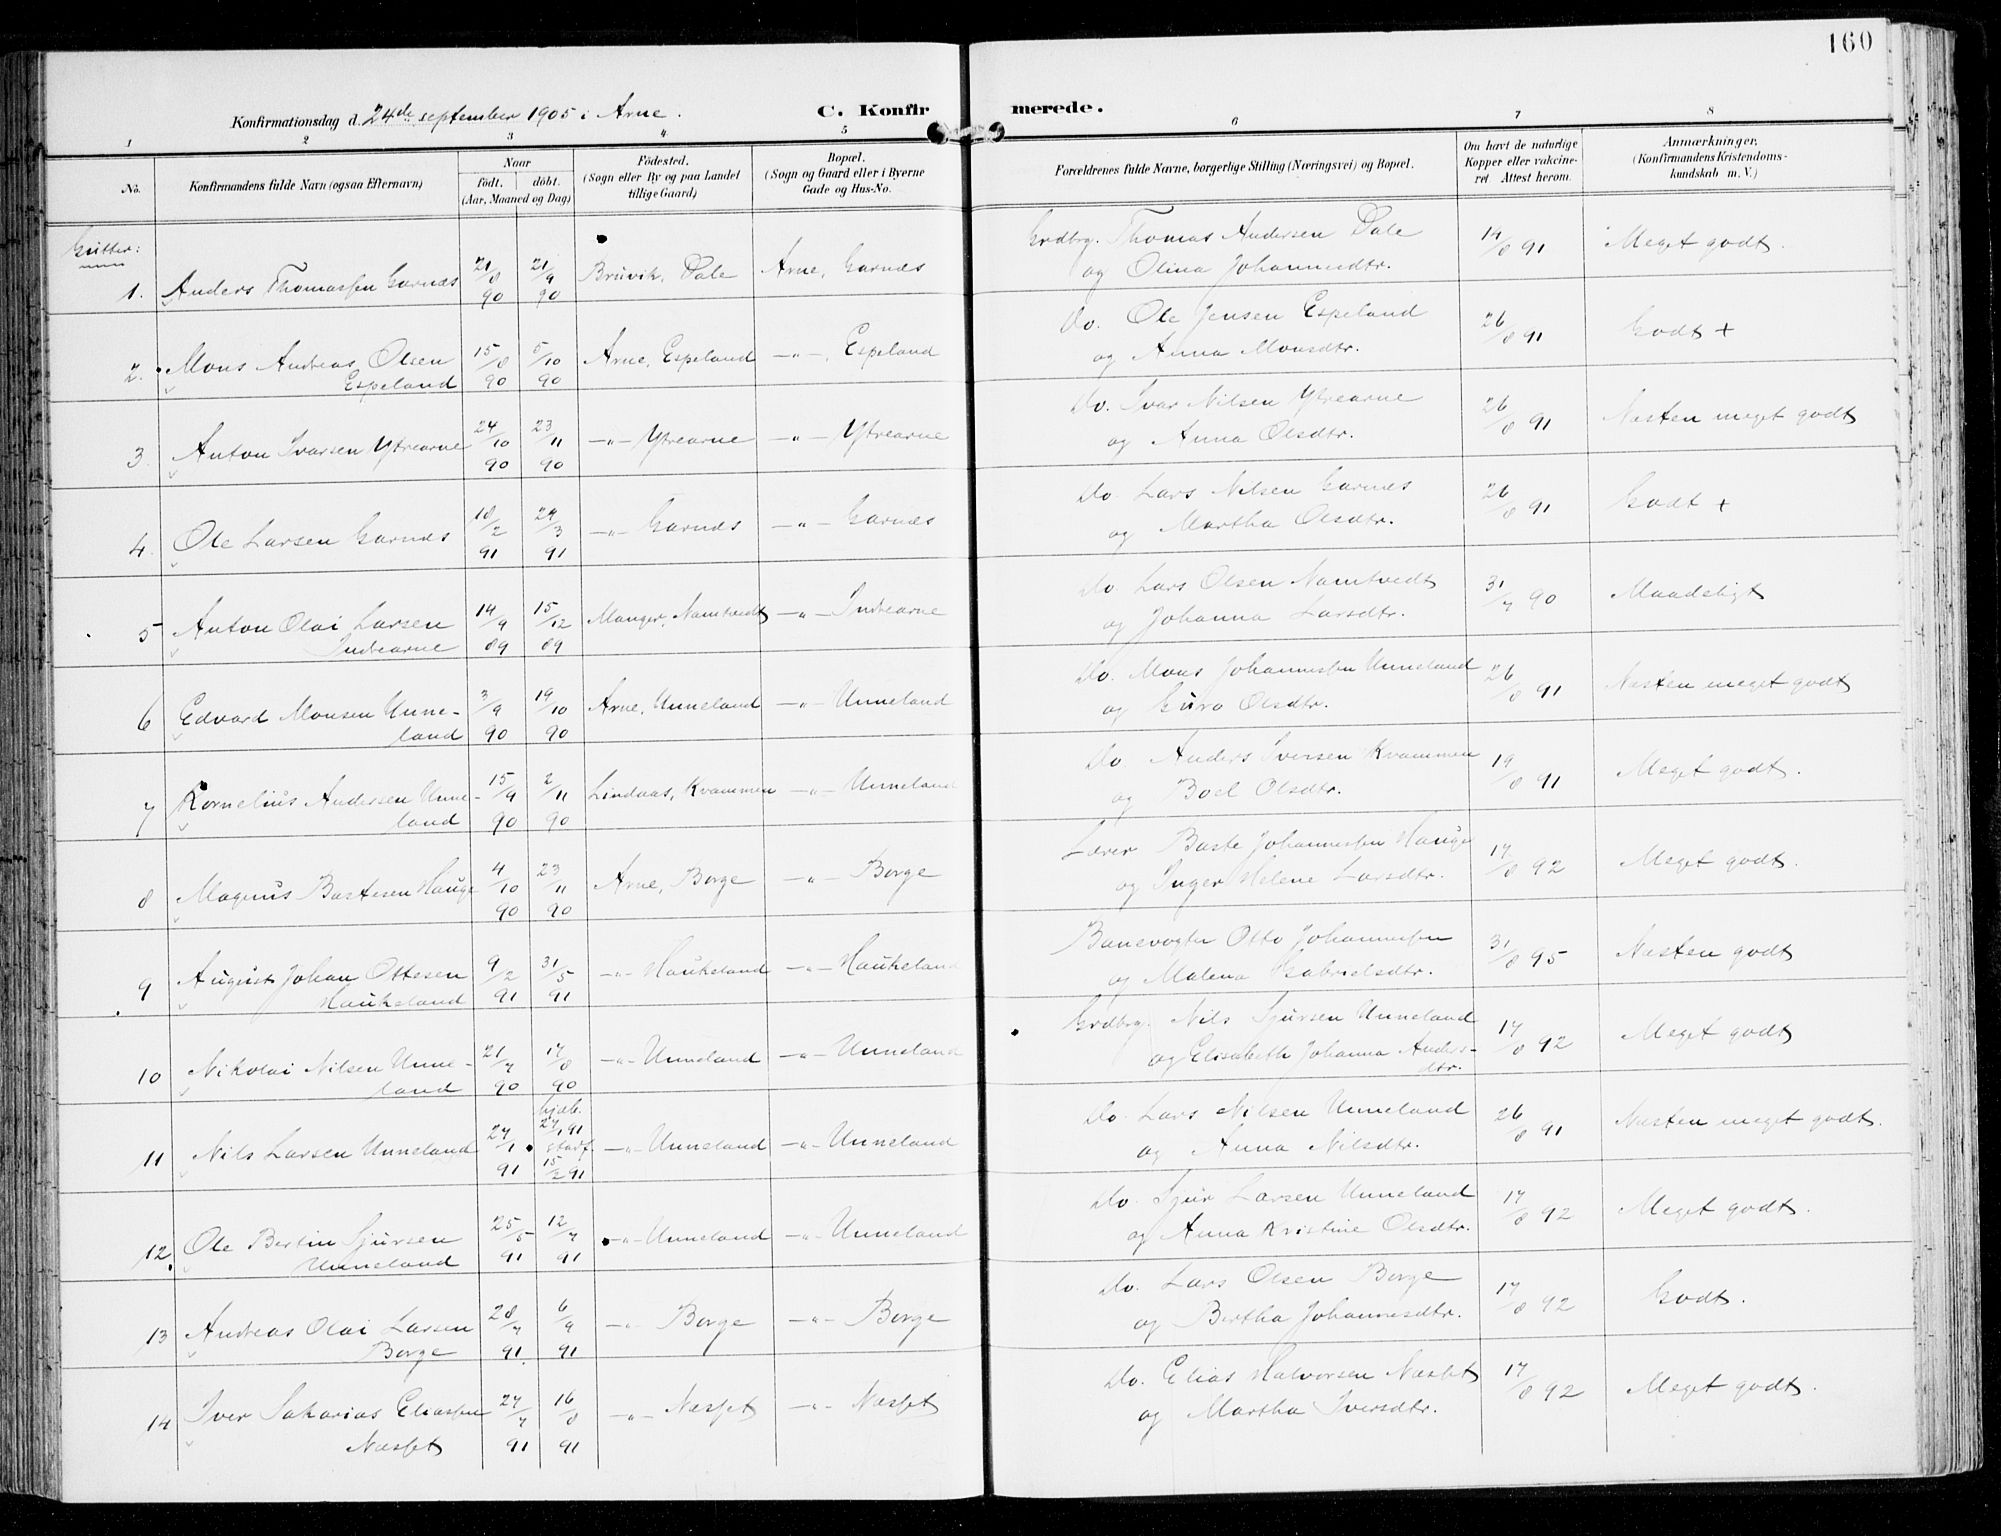 160
Konfirmationsdag d. 24de september 1905 i Arne.
C. Konfirmerede.
1 2 3 4 5 6 7 8
No.
Konfirmandens fulde Navn (ogsaa Efternavn)
Naar
født. døbt.
(Aar, Maaned og Dag)
Fødested.
(Sogn eller By og paa Landet
tillige Gaard)
Bopæl.
(Sogn og Gaard eller i Byerne
Gade og Hus-No.
Forældrenes fulde Navne, borgerlige Stilling (Næringsvei) og Bopæl.
Om havt de naturlige
Kopper eller vakcine-
ret. Attest herom.
Anmærkninger.
(Konfirmandens Kristendoms-
kundskab m. V.)
Gutter:
1. Anders Thomassen Garnæs 21/8 90 21/9 90 Bruvik, Dale Arne, Garnæs Grdbrg. Thomas Andersen Dale
og Olina Johannesdtr. 14/8 91 Meget godt.
2. Mons Andreas Olsen
Espeland 15/8 90 5/10 90 Arne, Espeland -"- Espeland Do. Ole Jensen Espeland
og Anna Monsdtr. 26/8 91 Godt +
3. Anton Ivarsen Ytrearne 24/10 90 23/11 90 -"- Ytrearne -"- Ytrearne Do. Ivar Nilsen Ytrearne
og Anna Olsdtr. 26/8 91 Næsten meget godt
4. Ole Larsen Garnæs 18/2 91 24/3 91 -"- Garnæs -"- Garnæs Do. Lars Nilsen Garnæs
og Martha Olsdtr. 26/8 91 Godt +
5 Anton Olai Larsen
Indrearne 14/9 89 15/12 89 Manger, Namtvedt -"- Indrearne Do Lars Olsen Namtvedt
og Johanna Larsdtr. 31/7 90 Maadeligt
6 Edvard Monsen Unne-
land 3/9 90 19/10 90 Arne, Unneland -"- Unneland Do. Mons Johannessen Unneland
og Guro Olsdtr. 26/8 91 Næsten meget godt
7 Kornelius Andersen Unne-
land 15/9 90 2/11 90 Lindaas, Kvammen -"- Unneland Do Anders Iversen Kvammen
og Boel Olsdtr. 19/8 91 Meget godt.
8 Magnus Bastesen Hauge 4/10 90 23/11 90 Arne, Borge -"- Borge Lærer Baste Johannessen Hauge
og Inger Helene Larsdtr. 17/8 92 Meget godt.
9 August Johan Ottesen
Haukeland 9/2 91 31/5 91 -"- Haukeland -"- Haukeland Banevogter Otto Johannessen
og Malena Gabrielsdtr. 31/8 95 Næsten godt
10 Nikolai Nilsen Unne-
land 21/7 90 17/8 90 -"- Unneland -"- Unneland Grdbrg. Nils Sjursen Unneland
og Elisabeth Johanna Anders-
dtr. 17/8 92 Meget godt
11 Nils Larsen Unneland 27/1 91 hjdb. 27/1 91 stadf. 15/2 91 -"- Unneland -"- Unneland Do. Lars Nilsen Unneland
og Anna Nilsdtr. 26/8 91 Næsten meget godt.
12. Ole Bertin Sjursen
Unneland 25/5 91 12/7 91 -"- Unneland -"- Unneland Do. Sjur Larsen Unneland
og Anna Kristine Olsdtr. 17/8 92 Meget godt.
13 Andreas Olai Larsen
Borge 28/7 91. 6/9 91 -"- Borge -"- Borge Do. Lars Olsen Borge
og Bertha Johannesdtr. 17/8 92 Godt.
14 Iver Sakarias Eliassen
Næsset 27/7 91 16/8 91 -"- Næsset -"- Næsset Do. Elias Halvorsen Næsset
og Martha Iversdtr. 17/8 92 Meget godt.